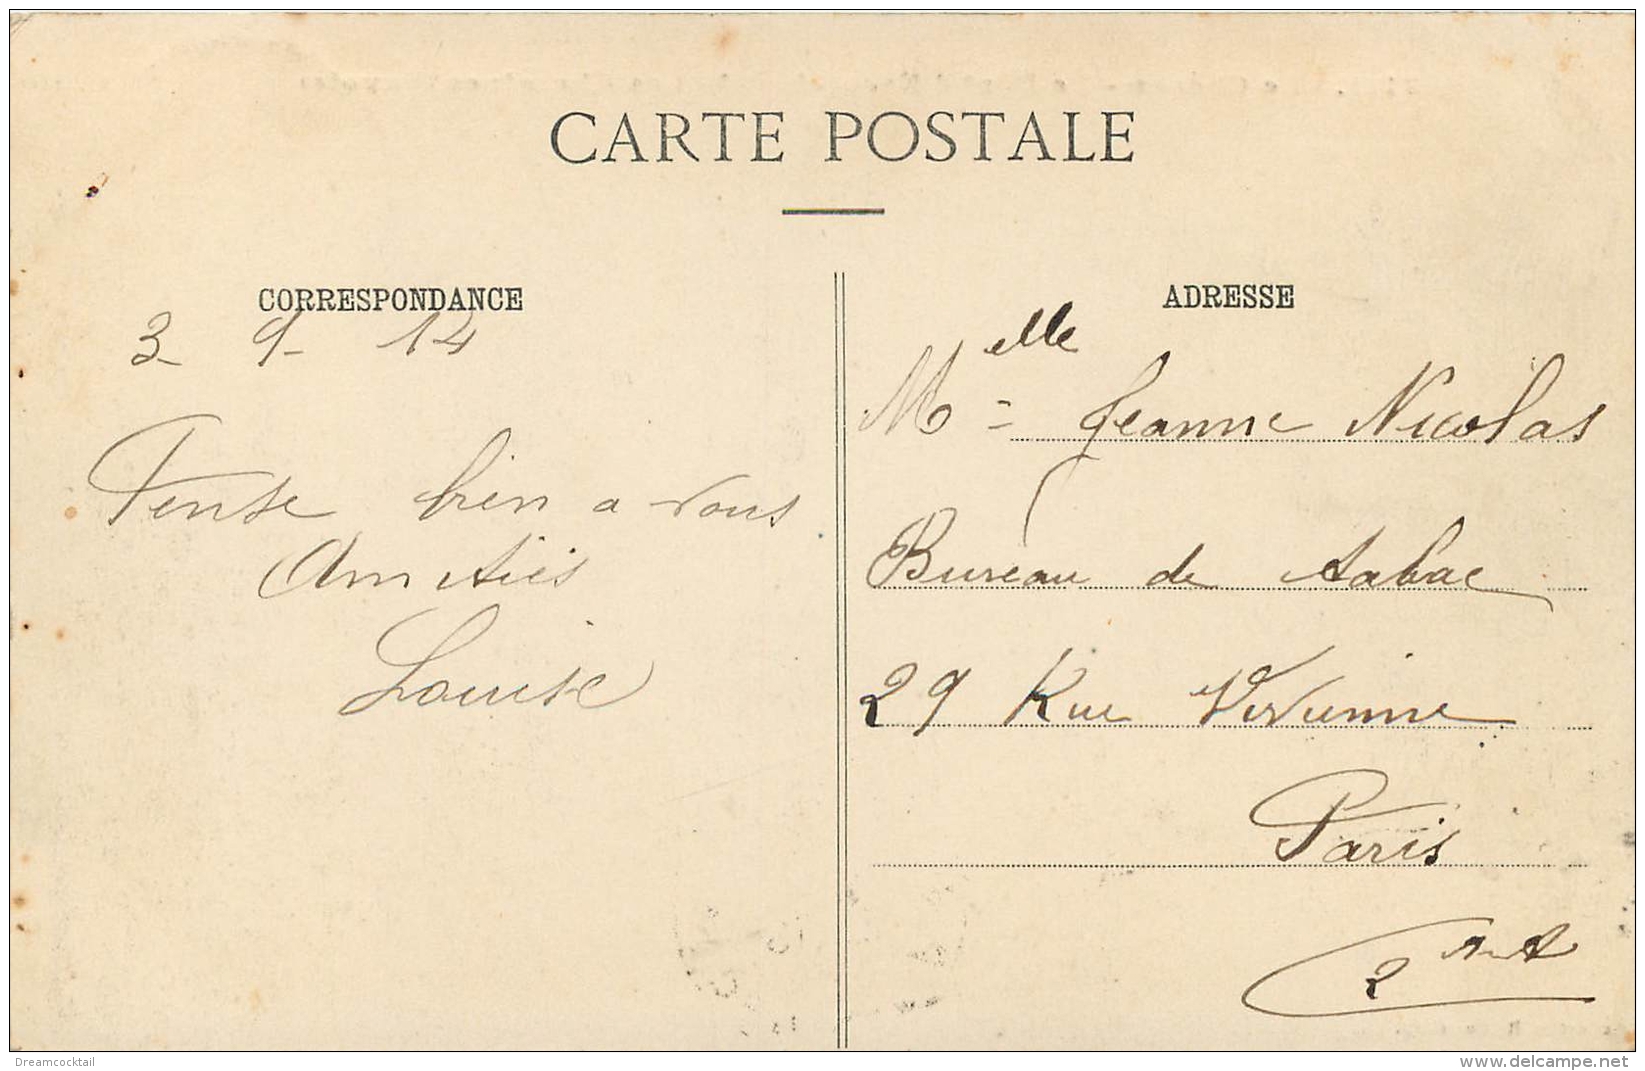 CARTE POSTALE
CORRESPONDANCE
3- 9- 14
Pense bien a vous
Amitiés
Louise
ADRESSE
Melle Jeanne Nicolas
Bureau de tabac
29 Rue Vivienne
Paris
2
Dreamcocktail
www.delcampe.net